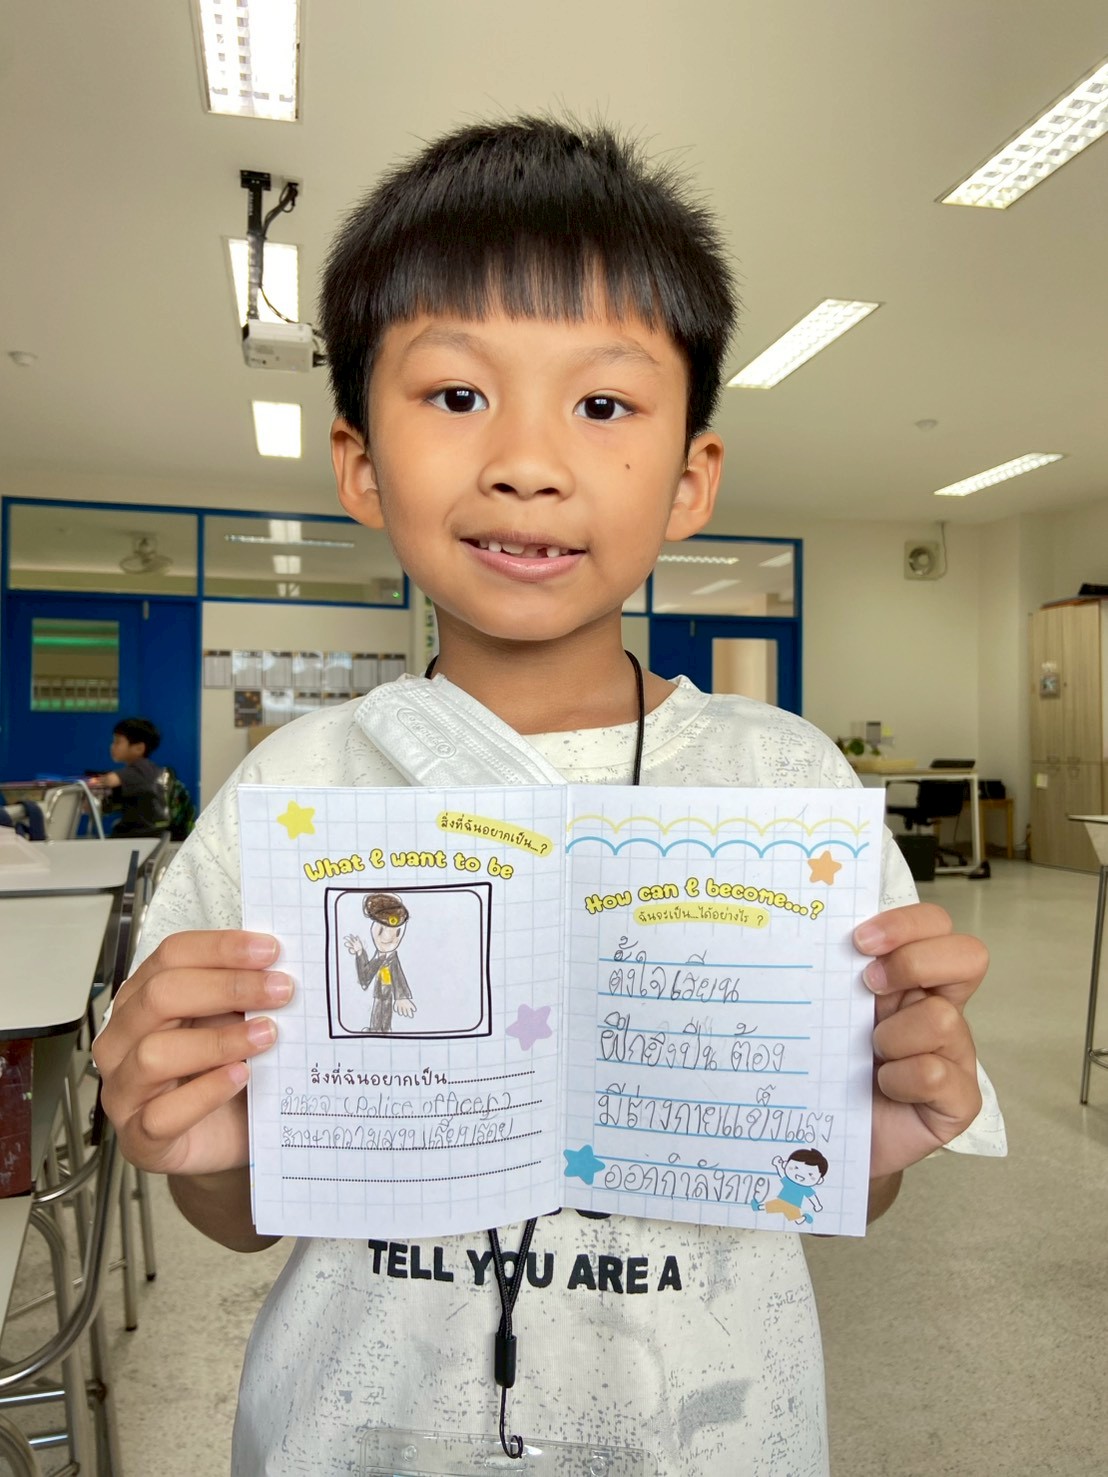 สิ่งที่ฉันอยากเป็น...?
What I want to be
สิ่งที่ฉันอยากเป็น
ตำรวจ (Police officer)
รักษาความสงบเรียบร้อย
How can I become...?
ฉันจะเป็น...ได้อย่างไร ?
ตั้งใจเรียน
ฝึกยิงปืน ต้อง
มีร่างกายแข็งแรง
ออกกำลังกาย
TELL YOU ARE A